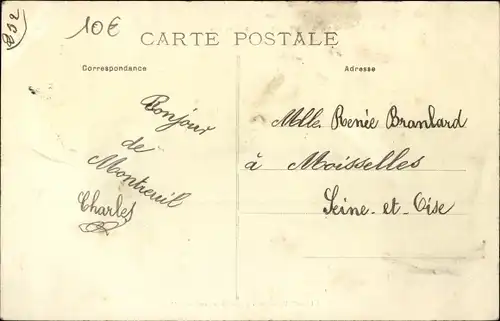 802
10€
CARTE POSTALE
Correspondance
Adresse
Bonjour
de
Montreuil
Charles
Mlle Renée Branlard
à Moisselles
Seine-et-Oise